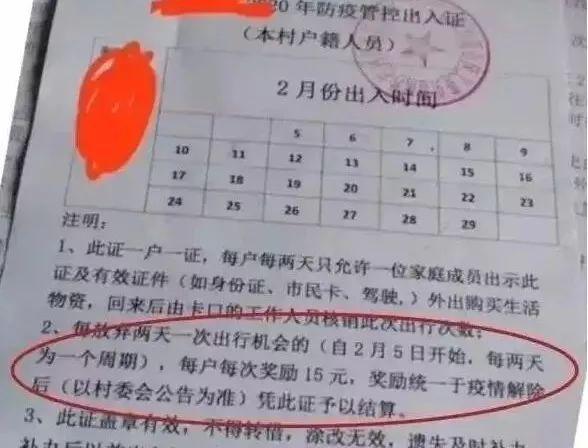 20年防疫管控出入证
（本村户籍人员）
2月份出入时间
5 6 7 8 9
10 11 12 13 14 15 16
17 18 19 20 21 22 23
24 25 26 27 28 29
注明：
1、此证一户一证，每户每两天只允许一位家庭成员出示此
证及有效证件（如身份证、市民卡、驾驶,）外出购买生活
物资，回来后由卡口的工作人员核销此次出行次数；
2、每放弃两天一次出行机会的（自2月5日开始，每两天
为一个周期），每户每次奖励15元，奖励统一于疫情解除
后（以村委会公告为准）凭此证予以结算。
3、此证盖章有效，不得转借，涂改无效，遗失及时补办